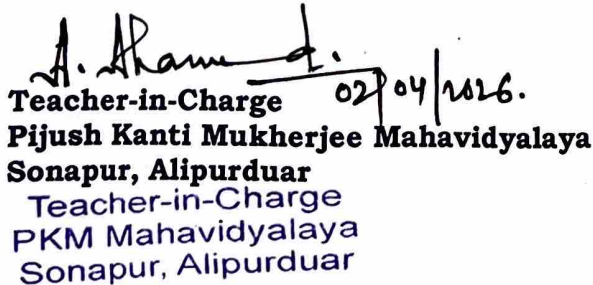 02/04/2026.
Teacher-in-Charge
Pijush Kanti Mukherjee Mahavidyalaya
Sonapur, Alipurduar
Teacher-in-Charge
PKM Mahavidyalaya
Sonapur, Alipurduar